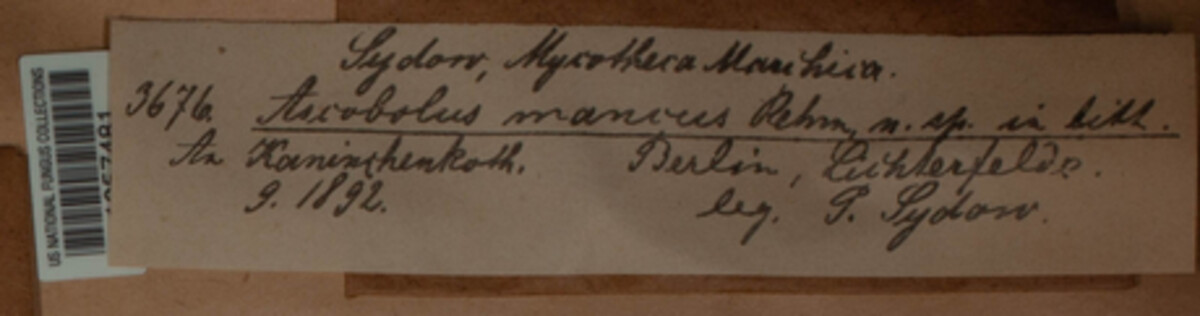 Sydow, Mycotheca Marchica.
3676. Ascobolus mancus Rehm, n. sp. in litt.
An Kaninchenkoth. Berlin, Lichterfelde.
9. 1892. leg. P. Sydow.
US NATIONAL FUNGUS COLLECTIONS